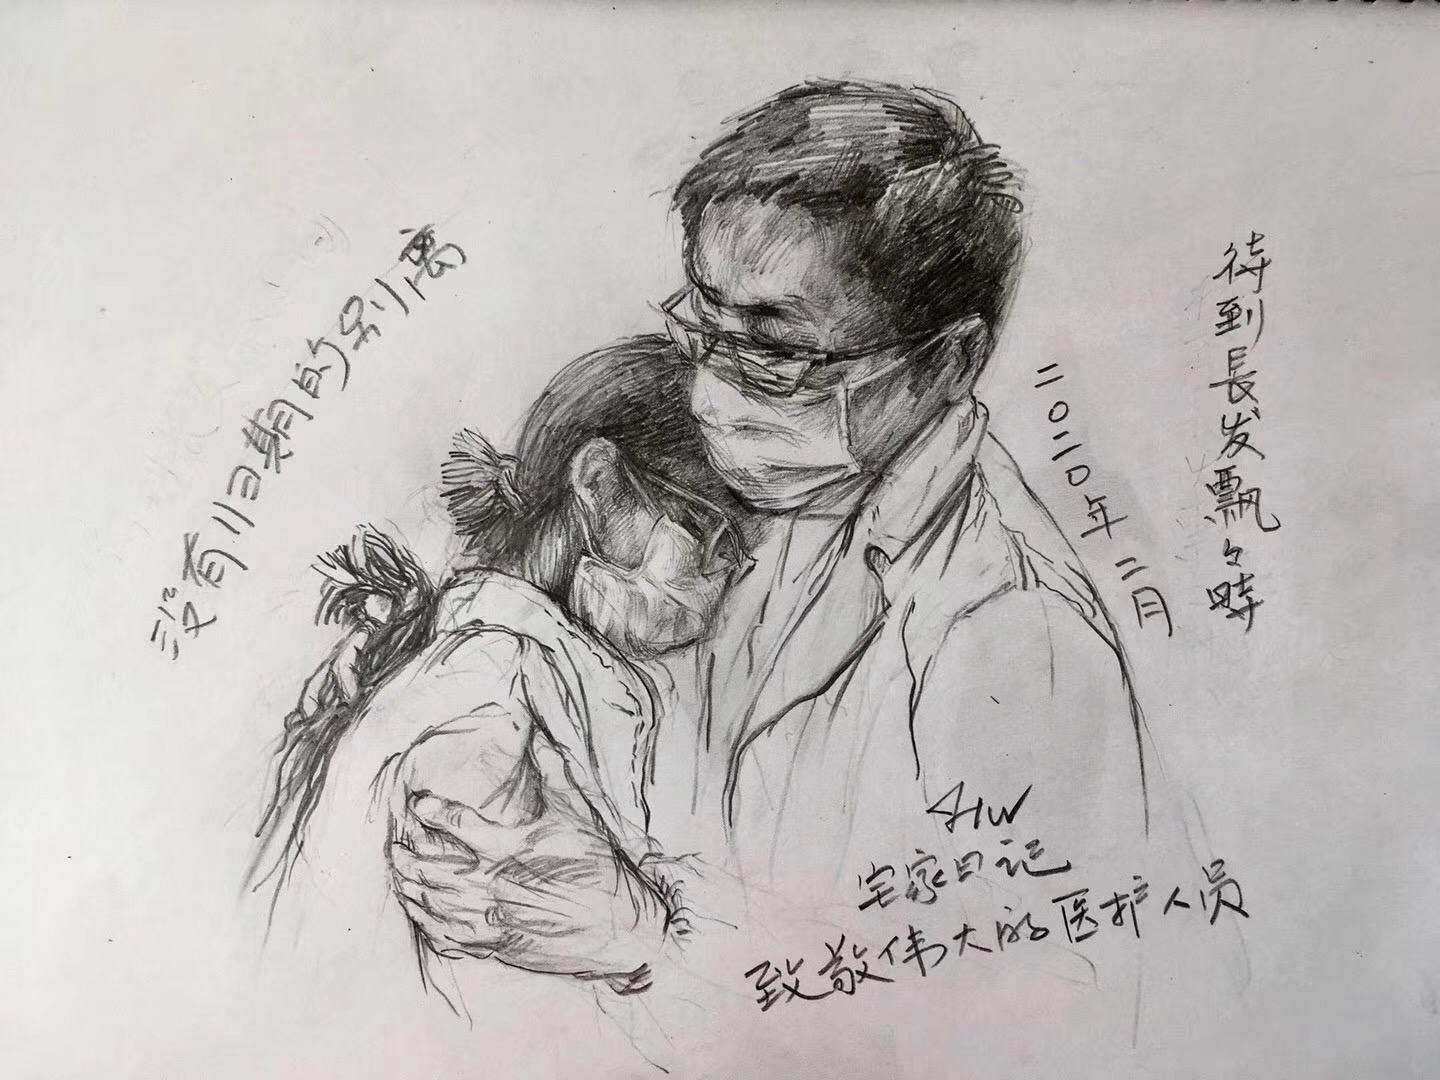 没有归期的别离
待到長发飘々時
二〇二〇年二月
宅家日记
致敬伟大的医护人员